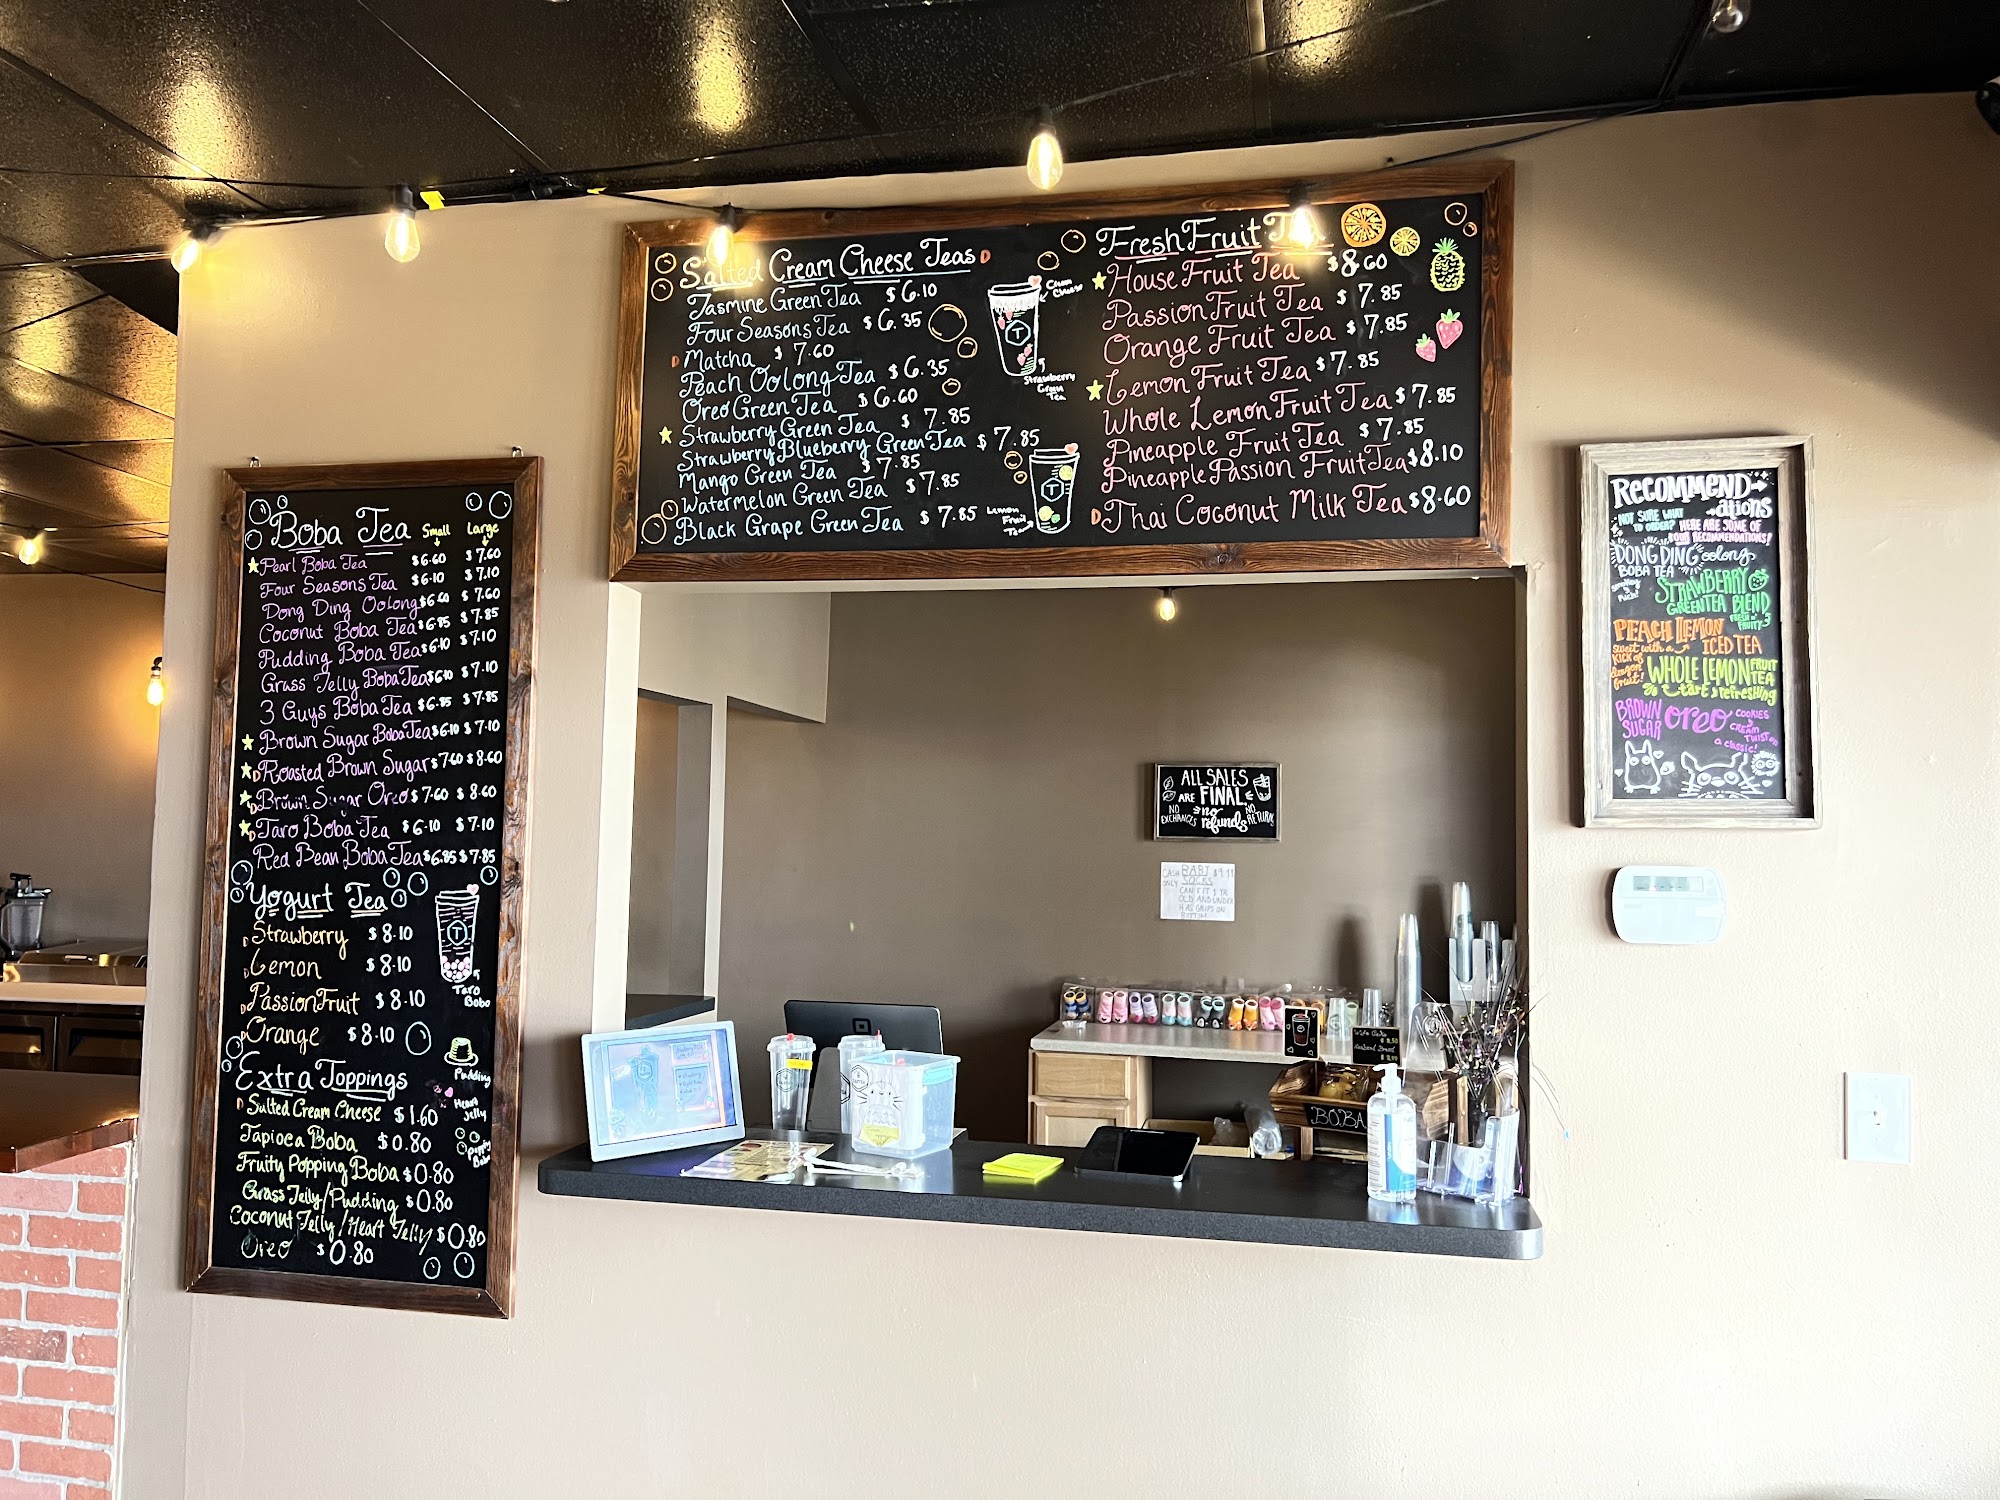 Boba Tea Small Large
Pearl Boba Tea $6.60 $7.60
Four Seasons Tea $6.10 $7.10
Dong Ding Oolong $6.60 $7.60
Coconut Boba Tea $6.85 $7.85
Pudding Boba Tea $6.10 $7.10
Grass Jelly Boba Tea $6.10 $7.10
3 Guys Boba Tea $6.85 $7.85
Brown Sugar Boba Tea $6.10 $7.10
D Roasted Brown Sugar $7.60 $8.60
D Brown Sugar Oreo $7.60 $8.60
D Taro Boba Tea $6.10 $7.10
Red Bean Boba Tea $6.85 $7.85
Yogurt Tea
D Strawberry $8.10
D Lemon $8.10
D PassionFruit $8.10
D Orange $8.10
Taro
Boba
Extra Toppings
D Salted Cream Cheese $1.60
Tapioca Boba $0.80
Fruity Popping Boba $0.80
Grass Jelly/Pudding $0.80
Coconut Jelly/Heart Jelly $0.80
Oreo $0.80
Pudding
Heart
Jelly
Popping
Boba
Salted Cream Cheese Teas D
Jasmine Green Tea $6.10
Four Seasons Tea $6.35
D Matcha $7.60
Peach Oolong Tea $6.35
Oreo Green Tea $6.60
Strawberry Green Tea $7.85
Strawberry Blueberry Green Tea $7.85
Mango Green Tea $7.85
Watermelon Green Tea $7.85
Black Grape Green Tea $7.85
T
Strawberry
Green
Tea
T
Lemon
Fruit
Tea
Fresh Fruit Tea
House Fruit Tea $8.60
Passion Fruit Tea $7.85
Orange Fruit Tea $7.85
Lemon Fruit Tea $7.85
Whole Lemon Fruit Tea $7.85
Pineapple Fruit Tea $7.85
Pineapple Passion Fruit Tea $8.10
D Thai Coconut Milk Tea $8.60
RECOMMEND-
ations
NOT SURE WHAT
TO ORDER? HERE ARE SOME OF
OUR RECOMMENDATIONS!
DONG DING oolong
BOBA TEA
STRAWBERRY
GREENTEA BLEND
FRESH n'
FRUITY
PEACH LEMON
ICED TEA
sweet with a
KICK of
dragon
fruit!
WHOLE LEMON FRUIT
TEA
tart & refreshing
BROWN
SUGAR
OREO
COOKIES
&
CREAM
TWIST on
a classic!
ALL SALES
ARE FINAL
NO
EXCHANGES
no
refunds
NO
RETURN
CASH
ONLY
BABY $9.99
SOCKS
CAN FIT 1 YR
OLD AND UNDER
HAS GRIPS ON
BOTTOM
BOBA